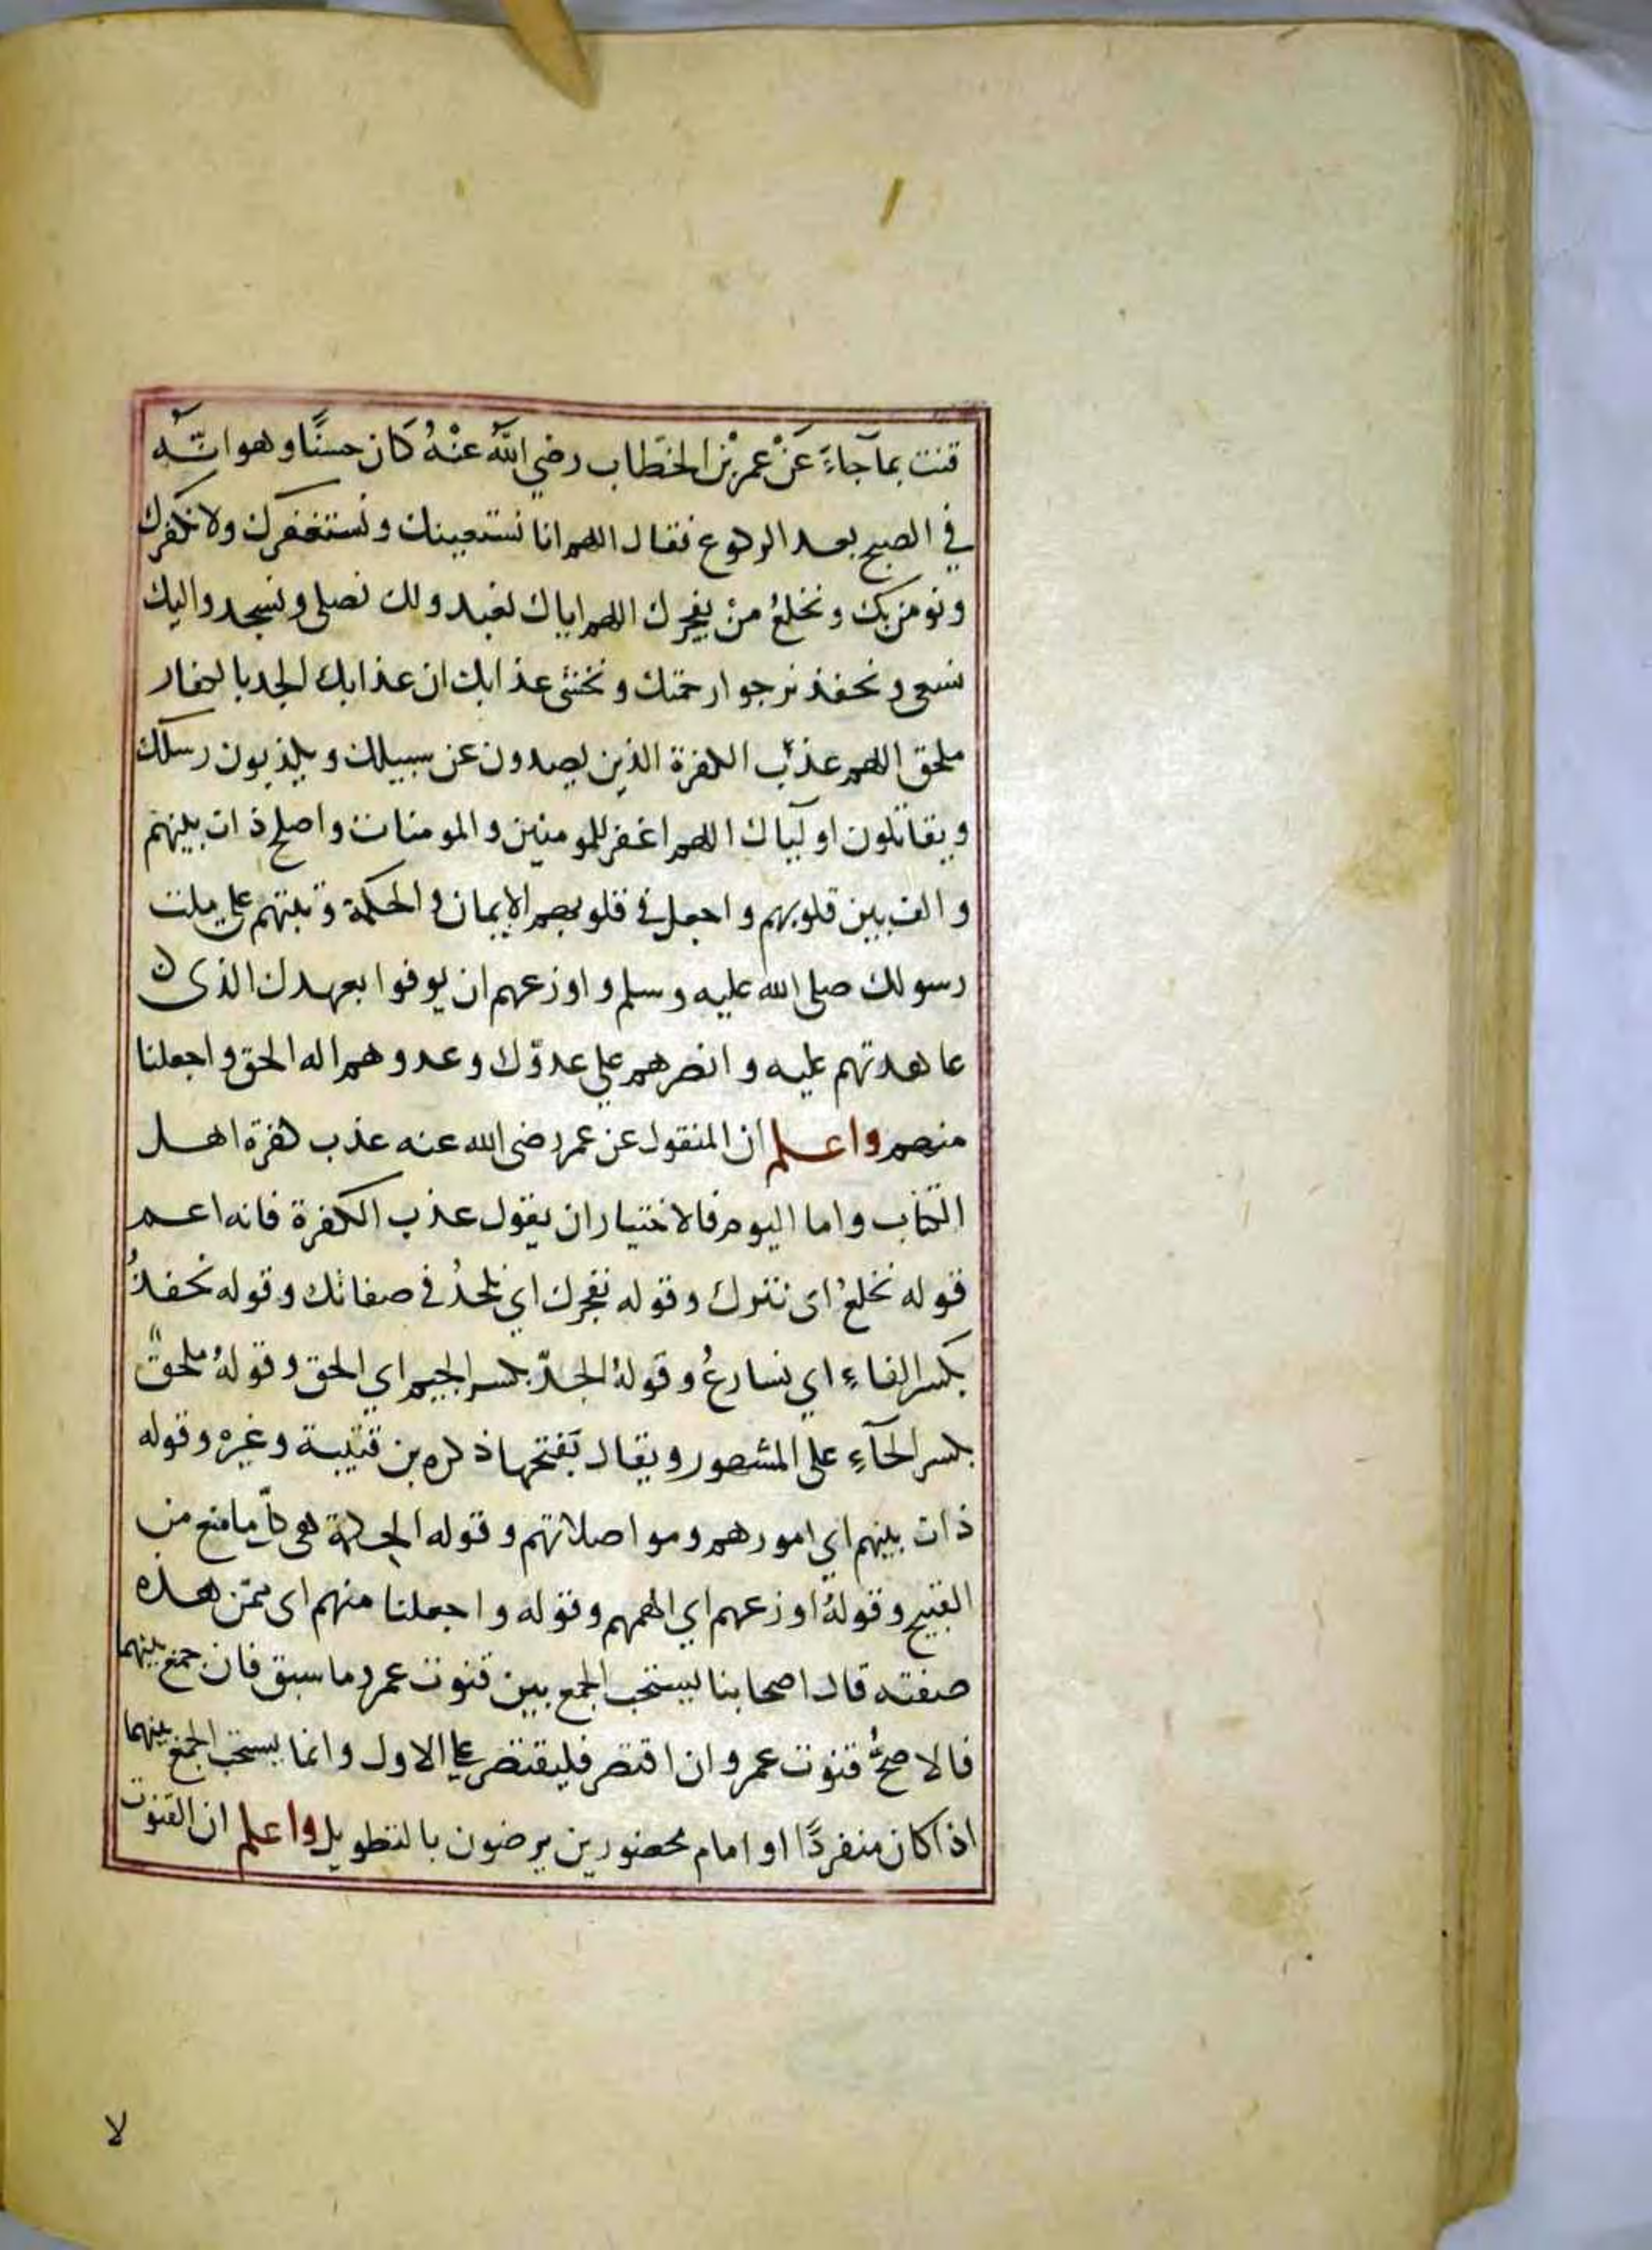 قنت بمآ جاءَ عَنْ عمر بْن الخطاب رضي اللّه عنْهُ كَان حسنًا وهو انّه
في الصبح بعد الركوع فقال اللهم انا نستعينك ونستغفرك ولا نكفرك
ونومن بك ونخلعُ منْ يفجرك اللهم اياك نعبد ولك نصلي ونسجد واليك
نسعى ونحفد نرجوا رحمتك ونخشى عذابك ان عذابك الجد بالكفار
ملحق اللهم عذّب الكفرة الذين يصدون عن سبيلك ويكذبون رسلك
ويقاتلون اوليآك اللهم اغفر للمومنين والمومنات واصلح ذات بينهم
والف بين قلوبهم واجعل في قلوبهم الايمان والحكمة وثبتهم على ملت
رسولك صلى الله عليه وسلم واوزعهم ان يوفوا بعهدك الذى
عاهدتهم عليه وانصرهم علي عدوّك وعدوهم اله الحق واجعلنا
منهم واعلم ان المنقول عن عمر رضى الله عنه عذب كفرة اهل
الكتاب واما اليوم فالاختيار ان يقول عذب الكفرة فانه اعم
قوله نخلعُ اى نترك وقوله نفجرك اي نلحدُ في صفاتك وقوله نحفدُ
بكسر الفاءِ اي نسارعُ وقولهُ الجدّ بكسر الجيم اي الحق وقولهُ ملحقٌ
بكسر الحآءِ على المشهور ويقال بَفتحها ذكره بن قتيبة وغيره وقوله
ذات بينهم اي امورهم ومواصلاتهم وقوله الحكمة هى كلّ ما منع من
القبيح وقولهُ اوزعهم اي الهمهم وقوله واجعلنا منهم اى ممّن هذه
صفته قال اصحابنا يستحب الجمع بين قنوت عمر وما سبق فان جمع بينهما
فالاصحُّ قنوت عمر وان اقتصر فليقتصر على الاول وانما يستحب الجمع بينهما
اذا كان منفردًا او امام محضورين يرضون بالتطويل واعلم ان القنوت
لا